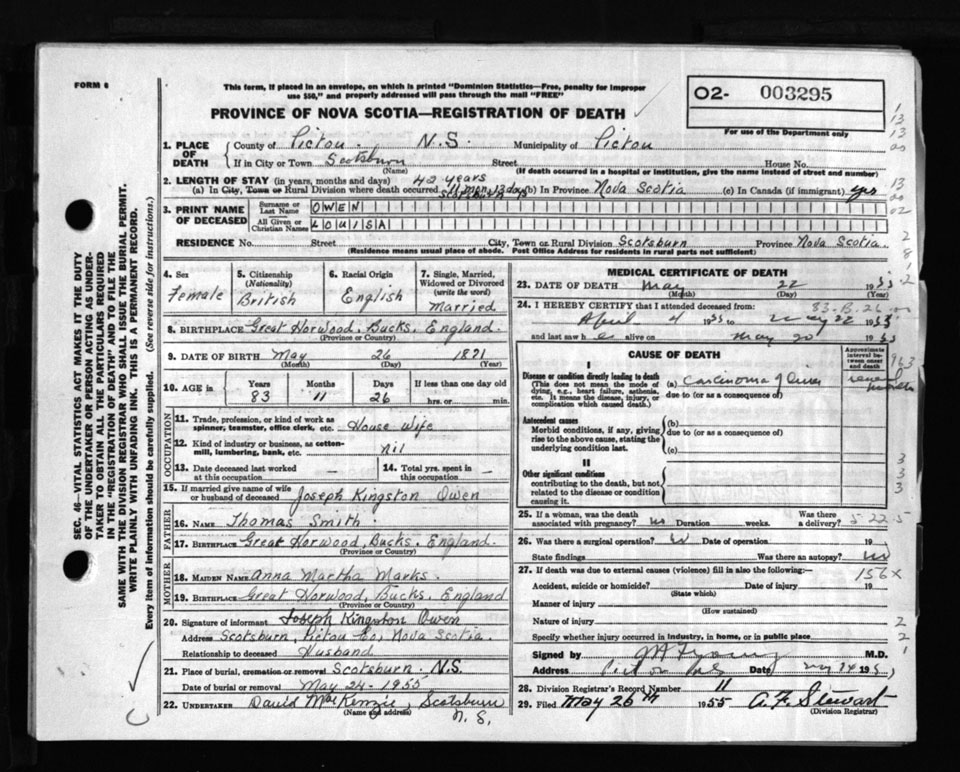 FORM 6
This form, if placed in an envelope, on which is printed "Dominion Statistics—Free, penalty for improper
use $50," and properly addressed will pass through the mail "FREE"
PROVINCE OF NOVA SCOTIA—REGISTRATION OF DEATH
O2- 003295
For use of the Department only
1. PLACE OF DEATH
County of Pictou. N.S. Municipality of Pictou
If in City or Town Scotsburn Street House No.
(Name) (If death occurred in a hospital or institution, give the name instead of street and number)
2. LENGTH OF STAY (in years, months and days) 42 years
(a) In City, Town or Rural Division where death occurred 11 mon, 13 days (b) In Province Nova Scotia (c) In Canada (if immigrant) yes
3. PRINT NAME OF DECEASED
Surname or Last Name OWEN
All Given or Christian Names LOUISA
RESIDENCE No. Street City, Town or Rural Division Scotsburn Province Nova Scotia.
(Residence means usual place of abode. Post Office Address for residents in rural parts not sufficient)
4. Sex Female
5. Citizenship (Nationality) British
6. Racial Origin English
7. Single, Married, Widowed or Divorced (write the word) Married
8. BIRTHPLACE Great Horwood, Bucks, England.
(Province or Country)
9. DATE OF BIRTH May 26 1871
(Month) (Day) (Year)
10. AGE in Years Months Days If less than one day old
83 11 26 hrs. or min.
OCCUPATION
11. Trade, profession, or kind of work as spinner, teamster, office clerk, etc. House wife
12. Kind of industry or business, as cotton-mill, lumbering, bank, etc. nil
13. Date deceased last worked at this occupation —
14. Total yrs. spent in this occupation —
15. If married give name of wife or husband of deceased Joseph Kingston Owen
FATHER
16. NAME Thomas Smith.
17. BIRTHPLACE Great Horwood, Bucks, England.
(Province or Country)
MOTHER
18. MAIDEN NAME Anna Martha Marks.
19. BIRTHPLACE Great Horwood, Bucks, England
(Province or Country)
20. Signature of informant Joseph Kingston Owen
Address Scotsburn, Pictou Co, Nova Scotia.
Relationship to deceased Husband
21. Place of burial, cremation or removal Scotsburn. N.S.
Date of burial or removal May 24-1955
22. UNDERTAKER David MacKenzie, Scotsburn
(Name and address) N. S.
MEDICAL CERTIFICATE OF DEATH
23. DATE OF DEATH May 22 1955
(Month) (Day) (Year)
24. I HEREBY CERTIFY that I attended deceased from:
April 4 1955 to May 22 1955
and last saw her alive on May 20 1955
CAUSE OF DEATH
Approximate interval between onset and death
I
Disease or condition directly leading to death
(This does not mean the mode of dying, e.g., heart failure, asthenia, etc. It means the disease, injury, or complication which caused death.)
(a) Carcinoma of Liver several months
due to (or as a consequence of)
Antecedent causes
Morbid conditions, if any, giving rise to the above cause, stating the underlying condition last.
(b)
due to (or as a consequence of)
(c)
II
Other significant conditions
contributing to the death, but not related to the disease or condition causing it.
25. If a woman, was the death associated with pregnancy? no Duration weeks. Was there a delivery? 5-22-5
26. Was there a surgical operation? no Date of operation 19
State findings Was there an autopsy? no
27. If death was due to external causes (violence) fill in also the following:— 156X
Accident, suicide or homicide? Date of injury 19
(State which)
Manner of injury
(How sustained)
Nature of injury
Specify whether injury occurred in industry, in home, or in public place
Signed by M.D.
Address Pictou N.S. Date May 24 1955
28. Division Registrar's Record Number 11
29. Filed May 26th 1955 A. F. Stewart
(Division Registrar)
SEC. 46—VITAL STATISTICS ACT MAKES IT THE DUTY
OF THE UNDERTAKER OR PERSON ACTING AS UNDER-
TAKER TO OBTAIN ALL THE PARTICULARS REQUIRED
IN THE "REGISTRATION OF DEATH" AND TO FILE THE
SAME WITH THE DIVISION REGISTRAR WHO SHALL ISSUE THE BURIAL PERMIT.
WRITE PLAINLY WITH UNFADING INK. THIS IS A PERMANENT RECORD.
Every item of information should be carefully supplied. (See reverse side for instructions.)